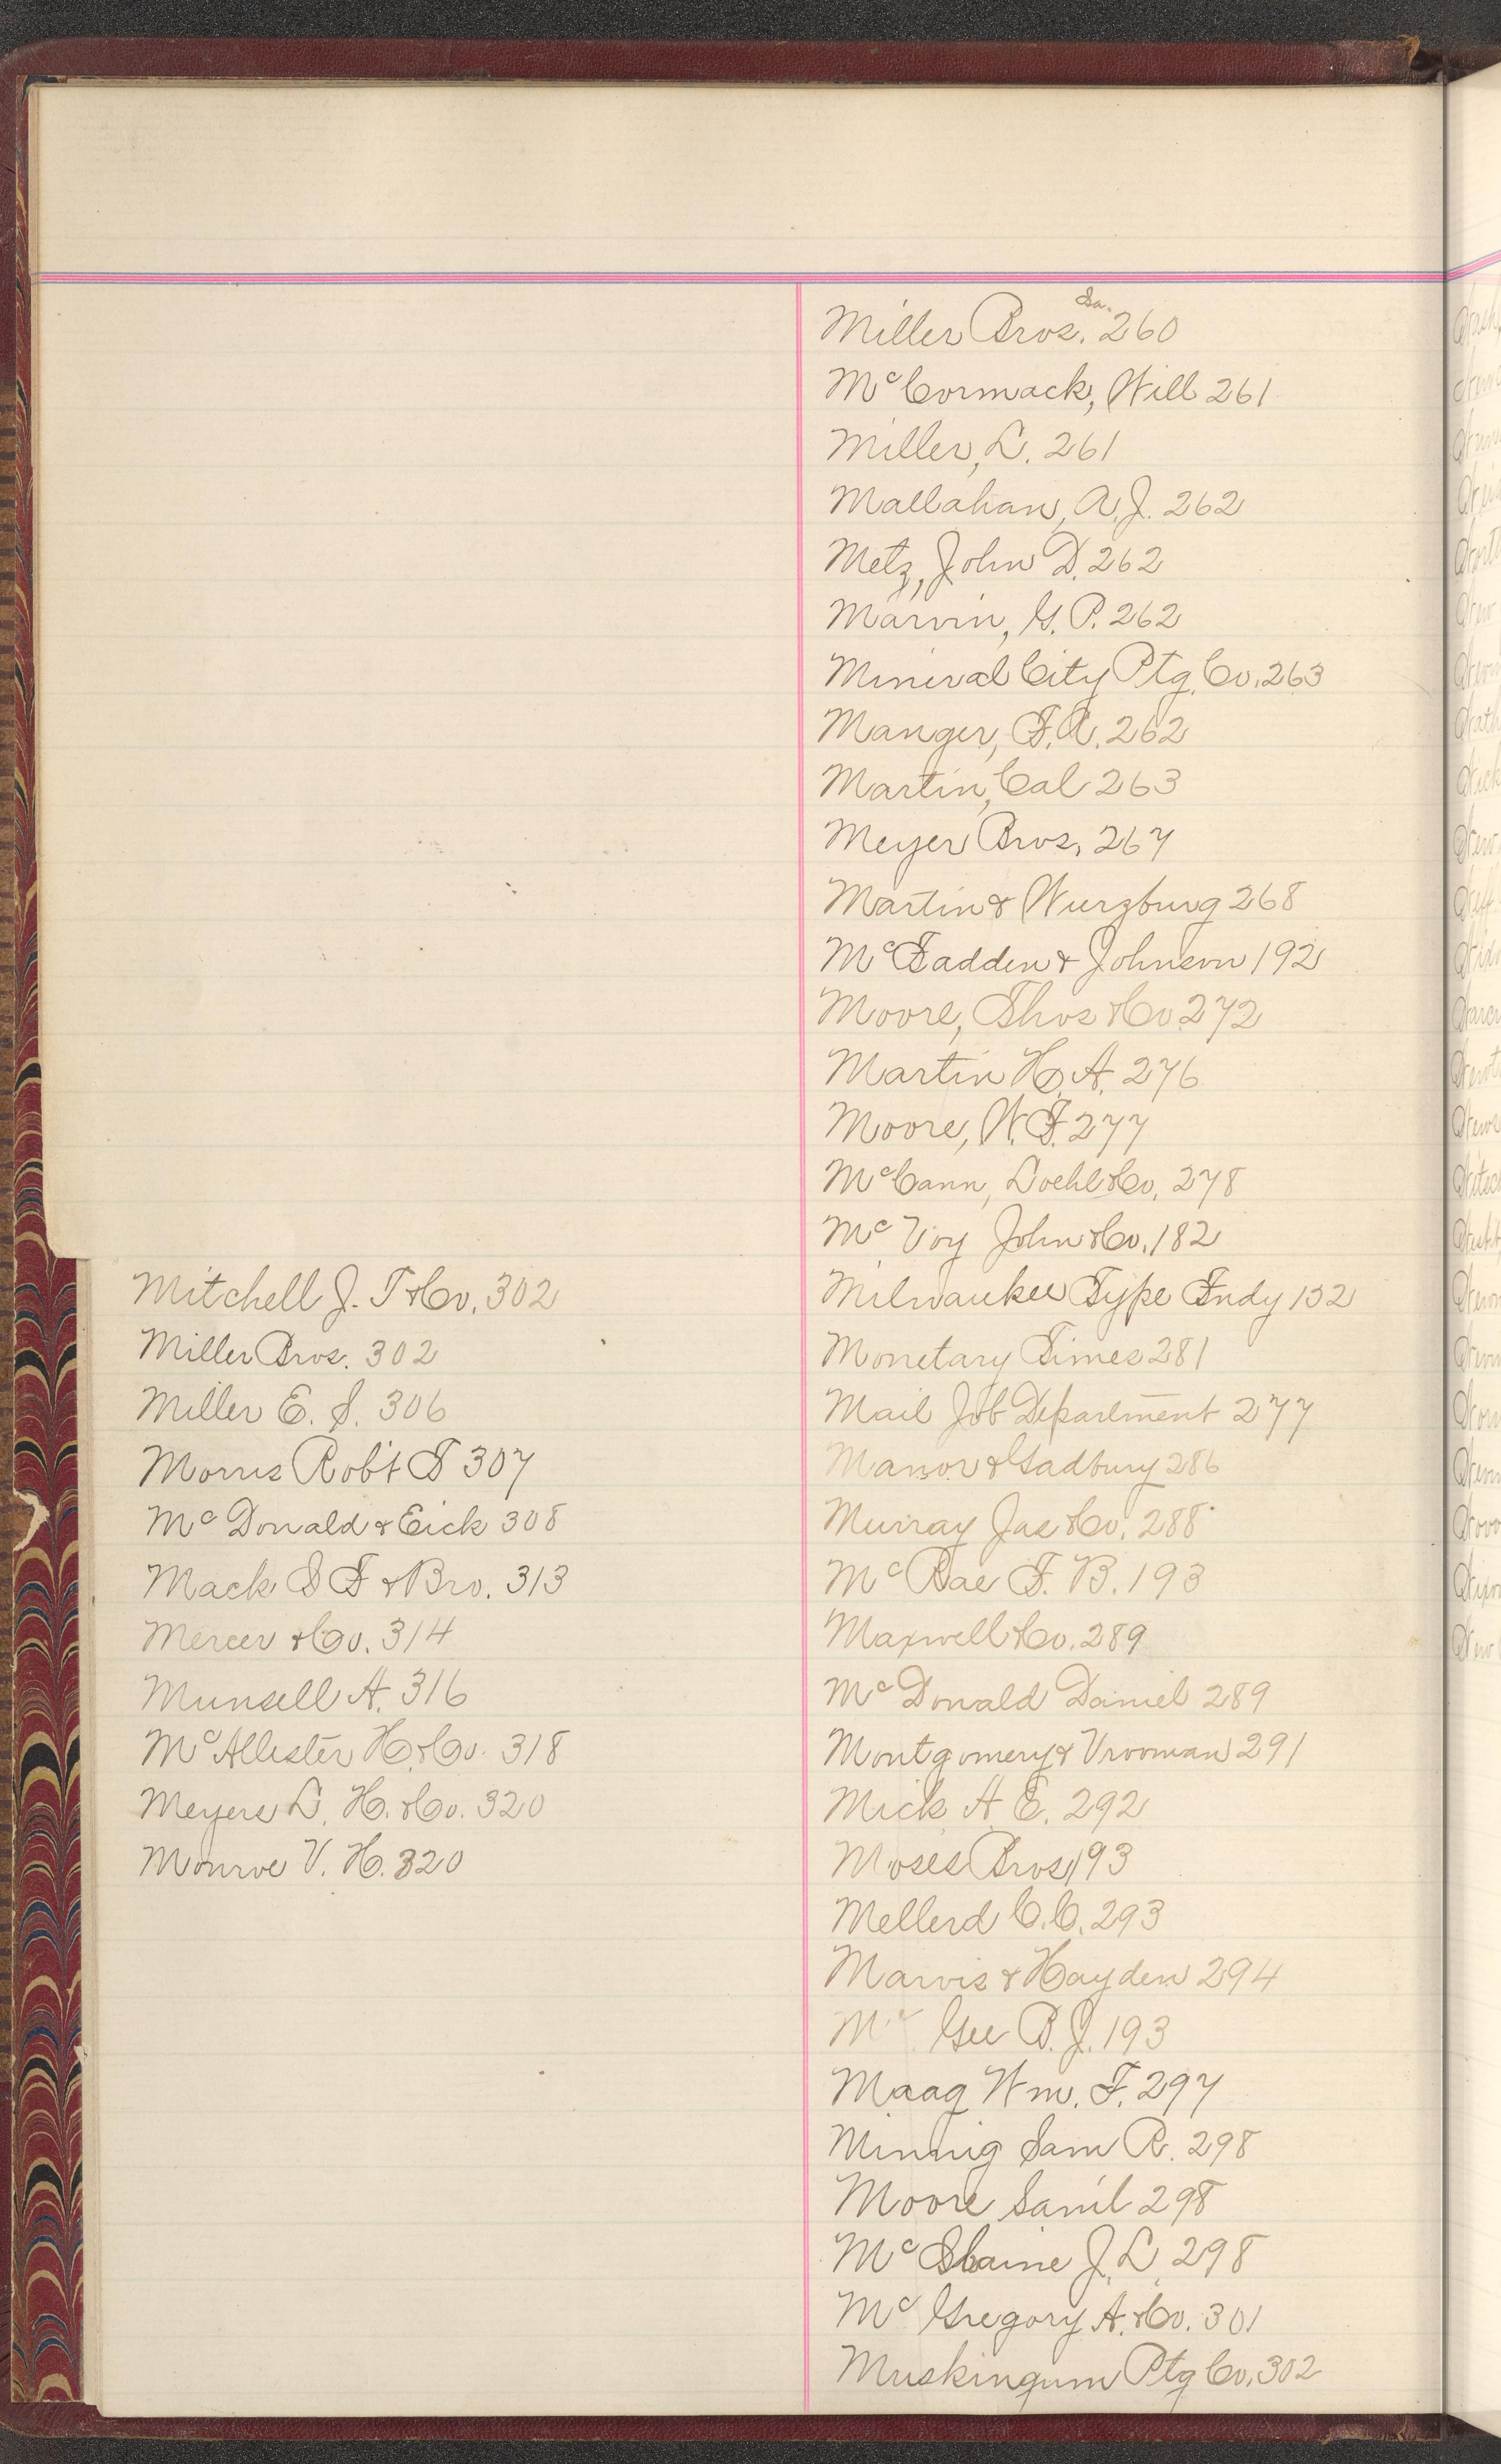 Mitchell J. T & Co. 302
Miller Bros. 302
Miller E. S. 306
Morris Rob't S 307
Mc Donald & Eick 308
Mack S F & Bro. 313
Mercer & Co. 314
Munsell A. 316
McAllister H. & Co. 318
Meyers L. H. & Co. 320
Monroe V. H. 320
Miller Bros. Ia. 260
McCormack, Will 261
Miller, L. 261
Mallahan, A. J. 262
Metz, John D. 262
Marvin, G. P. 262
Mineral City Ptg. Co. 263
Manger, F. A. 262
Martin, Cal 263
Meyer Bros. 267
Martin & Wurzburg 268
McFadden & Johnson 192
Moore, Thos & Co 272
Martin H. A. 276
Moore, W. F. 277
McCann, Loehl & Co. 278
Mc Voy John & Co. 182
Milwaukee Type Fndy 132
Monetary Times 281
Mail Job Department 277
Manor & Gadbury 286
Murray Jas & Co. 288
Mc Rae F. B. 193
Maxwell & Co. 289
Mc Donald Daniel 289
Montgomery & Vrooman 291
Mick A. E. 292
Moses Bros 193
Mellerd C. C. 293
Marvis & Hayden 294
Mc Gee P. J. 193
Maag Wm. F. 297
Minnig Sam R. 298
Moore Sam'l 298
Mc J. L. 298
Mc Gregory A. & Co. 301
Muskingum Ptg Co. 302